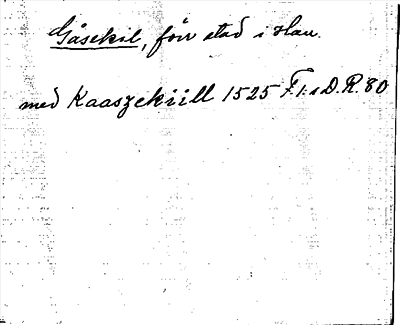 Gåsekil, förr stad i Hau.
med Kaaszekiill 1525 F.I:s D.R. 80